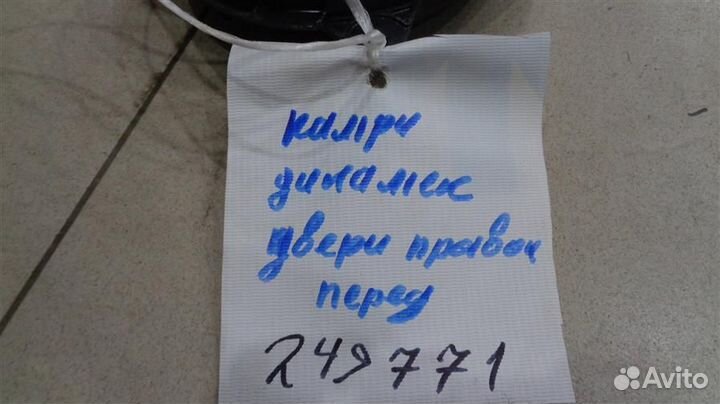 камри
динамек
двери правой
перед
249771
Avito